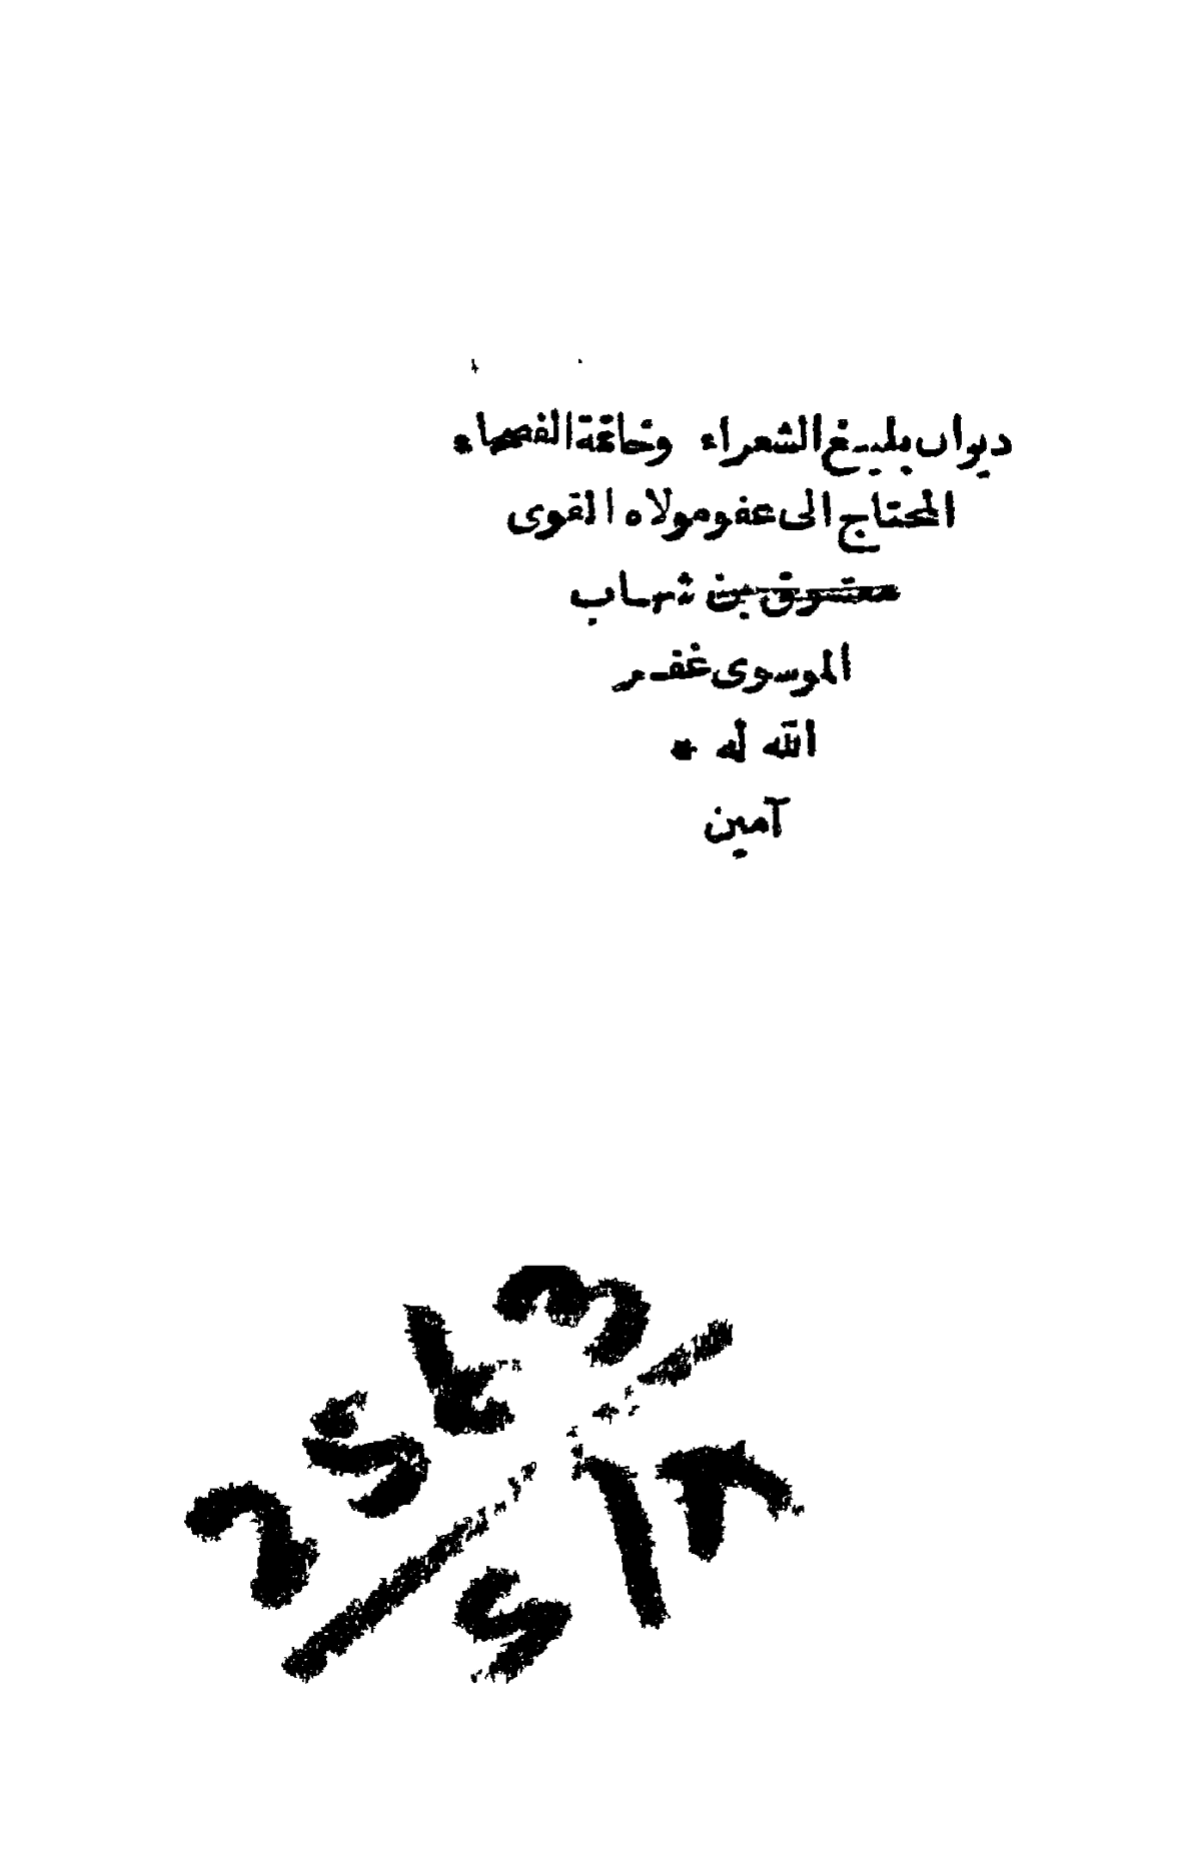 ديوان بليغ الشعراء وخاتمة الفصحاء
المحتاج الى عفو مولاه القوى
معتوق بن شهاب
الموسوى غفر
الله له *
آمين